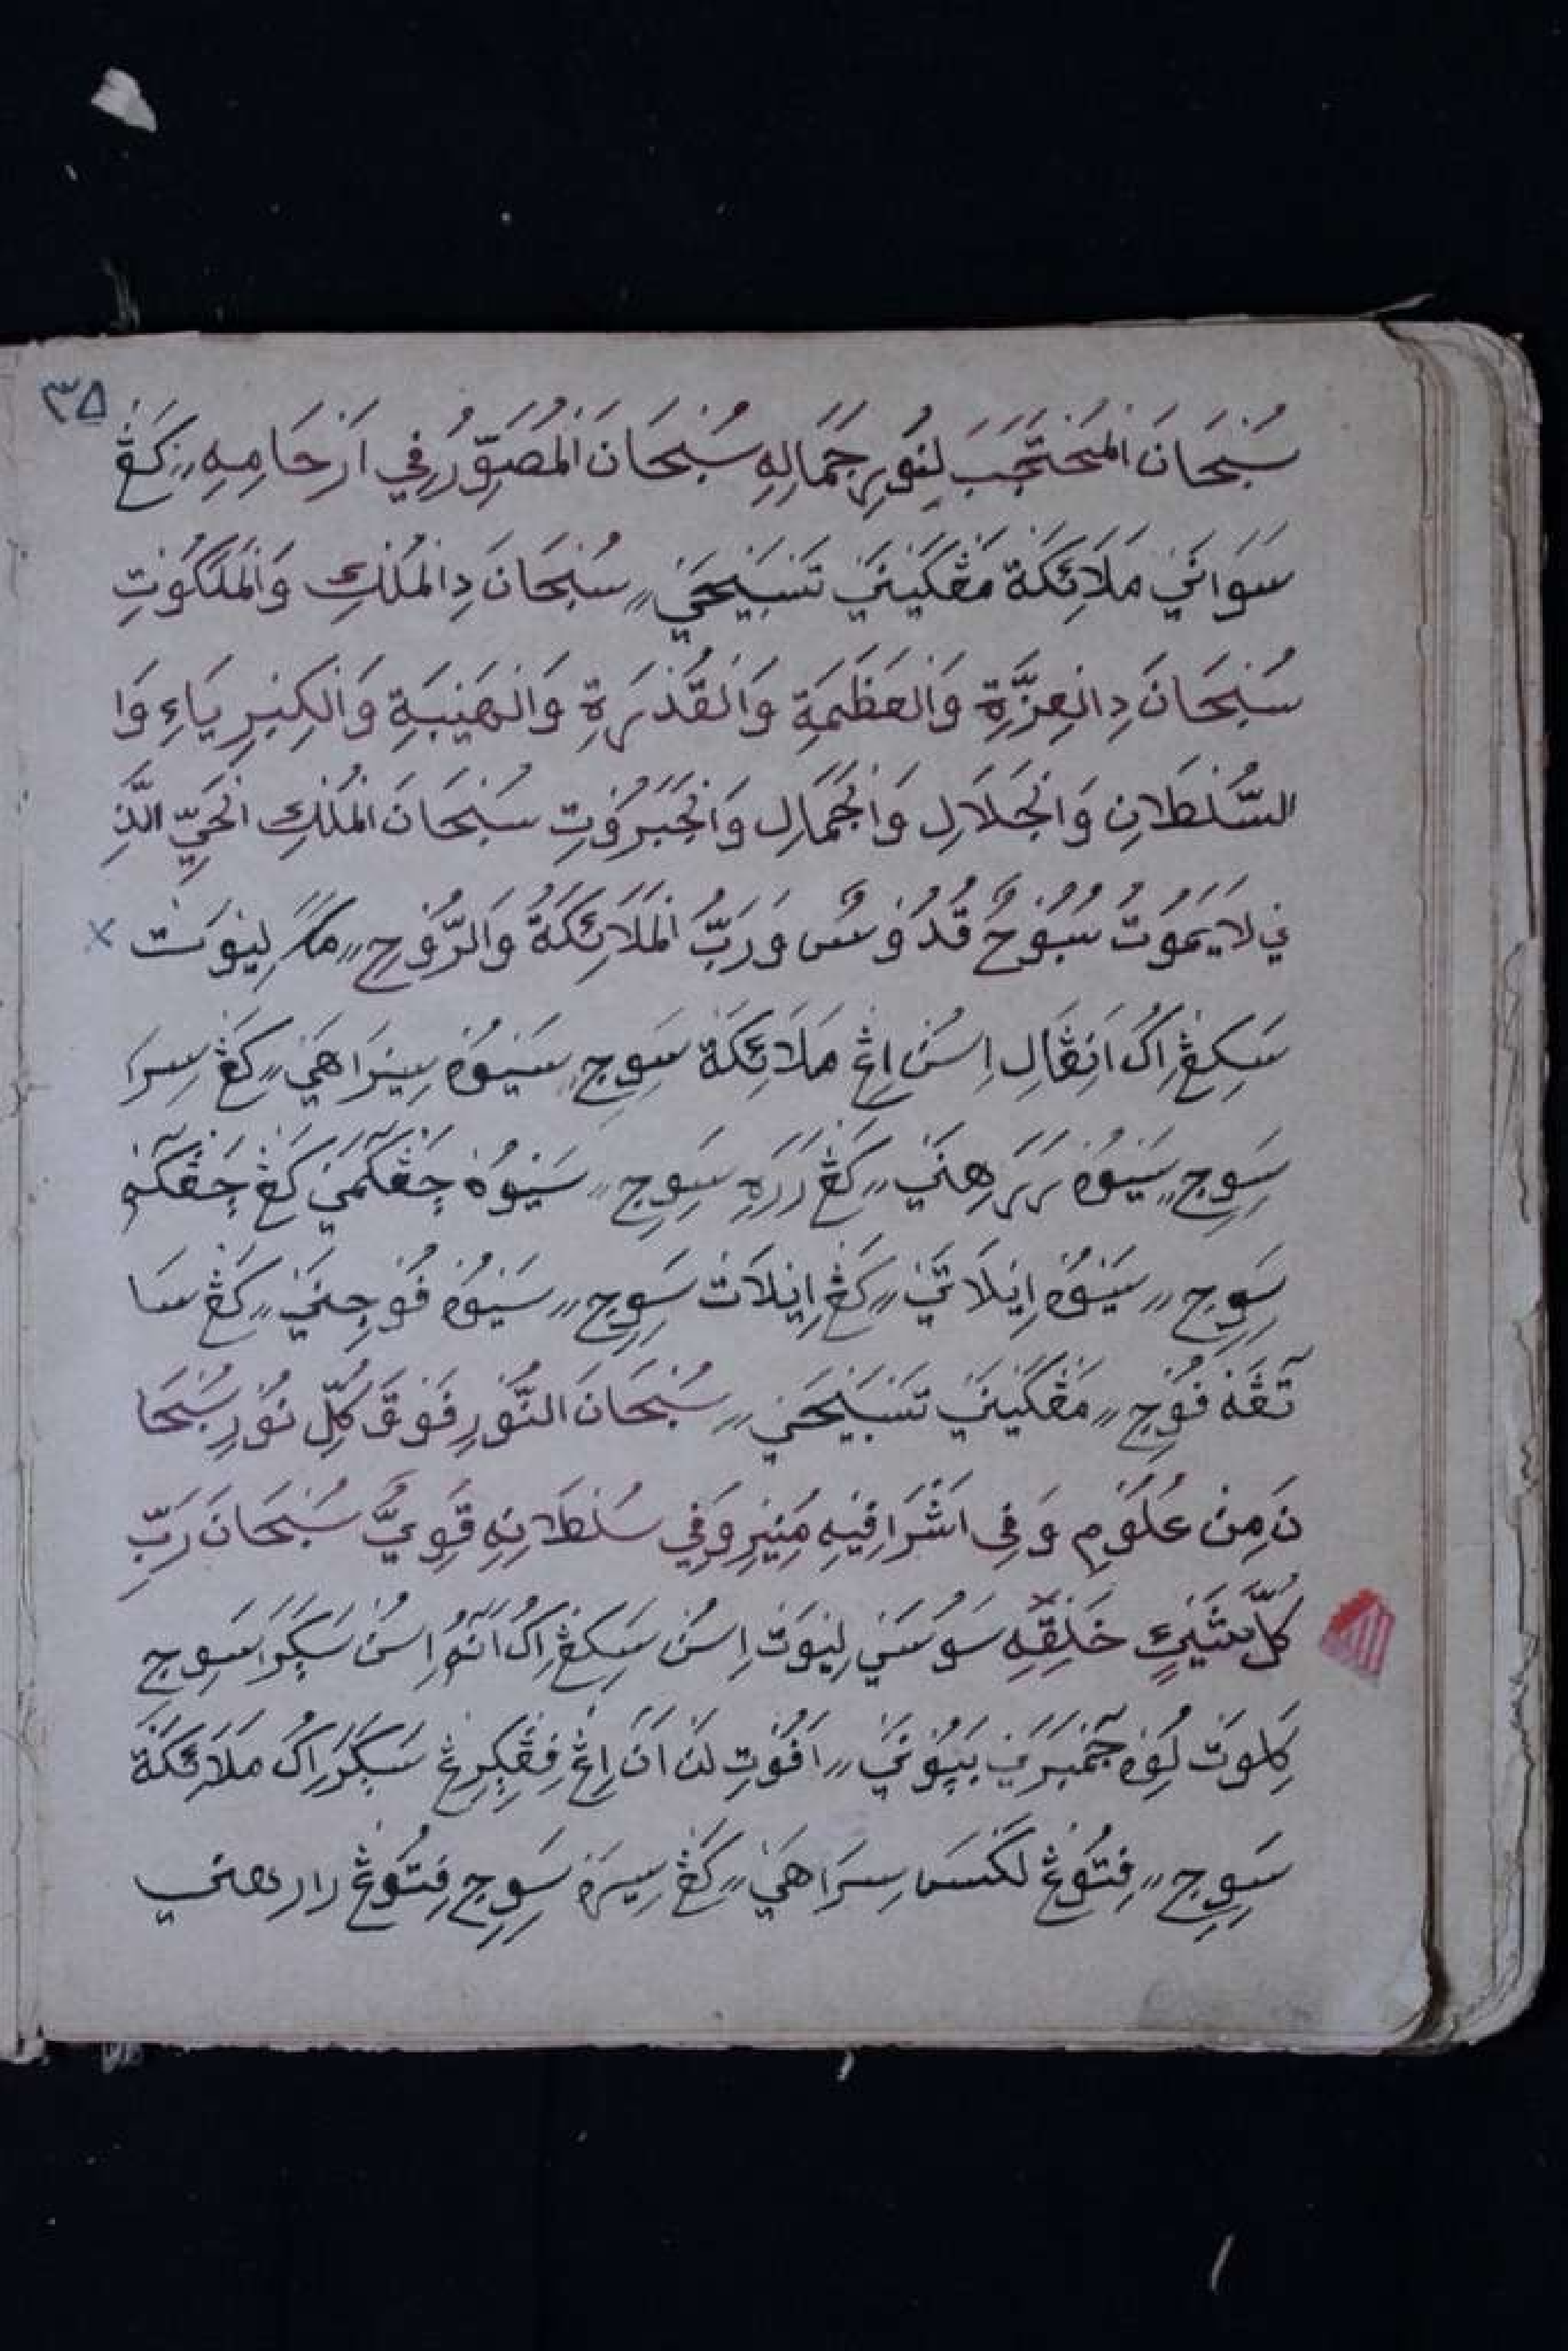 ٣٥
سُبْحَانَ الْمُحْتَجَبَ لِنُوْرِ جَمَالِهِ سُبْحَانَ الْمُصَوِّرُ فِي اَرْحَامِهِ كَڠْ
سَوَانَيْ مَلَائِكَةْ مَڠْكَيْنَيْ تَسْبَيْحَيْ سُبْحَانَ دِالْمُلْكِ وَالْمَلَكُوْتِ
سُبْحَانَ دِالْعِزَّةِ وَالْعَظَمَةِ وَالْقُدْرَةِ وَالْهَيْبَةِ وَالْكِبْرِيَاءِ وَا
السُّلْطَانِ وَالْجَلَالِ وَالْجَمَالِ وَالْجَبَرُوْتِ سُبْحَانَ الْمُلْكِ الْحَيِّ الَّذِ
ي لَا يَمُوْتُ سُبُّوْحٌ قُدُّوْسٌ وَرَبُّ الْمَلَائِكَةُ وَالرُّوْحِ لِيْوَتْ ×
سَكِڠْ اِكُ اِسُنْ اِڠْ مَلَائِكَةْ سَوِجِ سَيْوُهْ سِيْرَاهَيْ كَڠْ سِرَا
سَوِجِ سَيْوُهْ رَرَهِنَيْ كَڠْ رَرَهِ سَوِجِ سَيْوُهْ چَڠْكَمَيْ كَڠْ چَڠْكَمْ
سَوِجِ سَيْوُهْ اِيْلَاتَيْ كَڠْ اِيْلَاتْ سَوِجِ سَيْوُهْ فُوْجِنَيْ كَڠْ سَا
تَڠَهْ فُوْجِ مَڠْكَيْنَيْ تَسْبَيْحَيْ سُبْحَانَ النُّوْرِ فَوْقَ كُلِّ نُوْرِ سُبْحَا
نَ مِنْ عُلُوْمٍ وَفِى اَشْرَافِيْهِ مُنِيْرِ وَفِي سُلْطَانِهِ قَوِيٌّ سُبْحَانَ رَبِّ
كُلِّ شَيْئٍ خَلِقِهِ سَوُسَيْ لِيْوَتْ اِسُنْ سَكِڠْ اِكُ اَنْمُ اِسُنْ سَكَرَا سَوِجِ
كِلِوَتْ لُوْهْ جَمْبَرَيْ بَپُوْنَيْ اَفُوْتِ لَنْ اَنَ اِڠْ فِڠْكِرِڠْ سَكَرَ اِكُ مَلَائِكَةْ
سَوِجِ فِتُوْڠْ لَكْسَ سِرَاهَيْ كَڠْ سِيْرَهْ سَوِجِ فِتُوْڠْ رارهنى